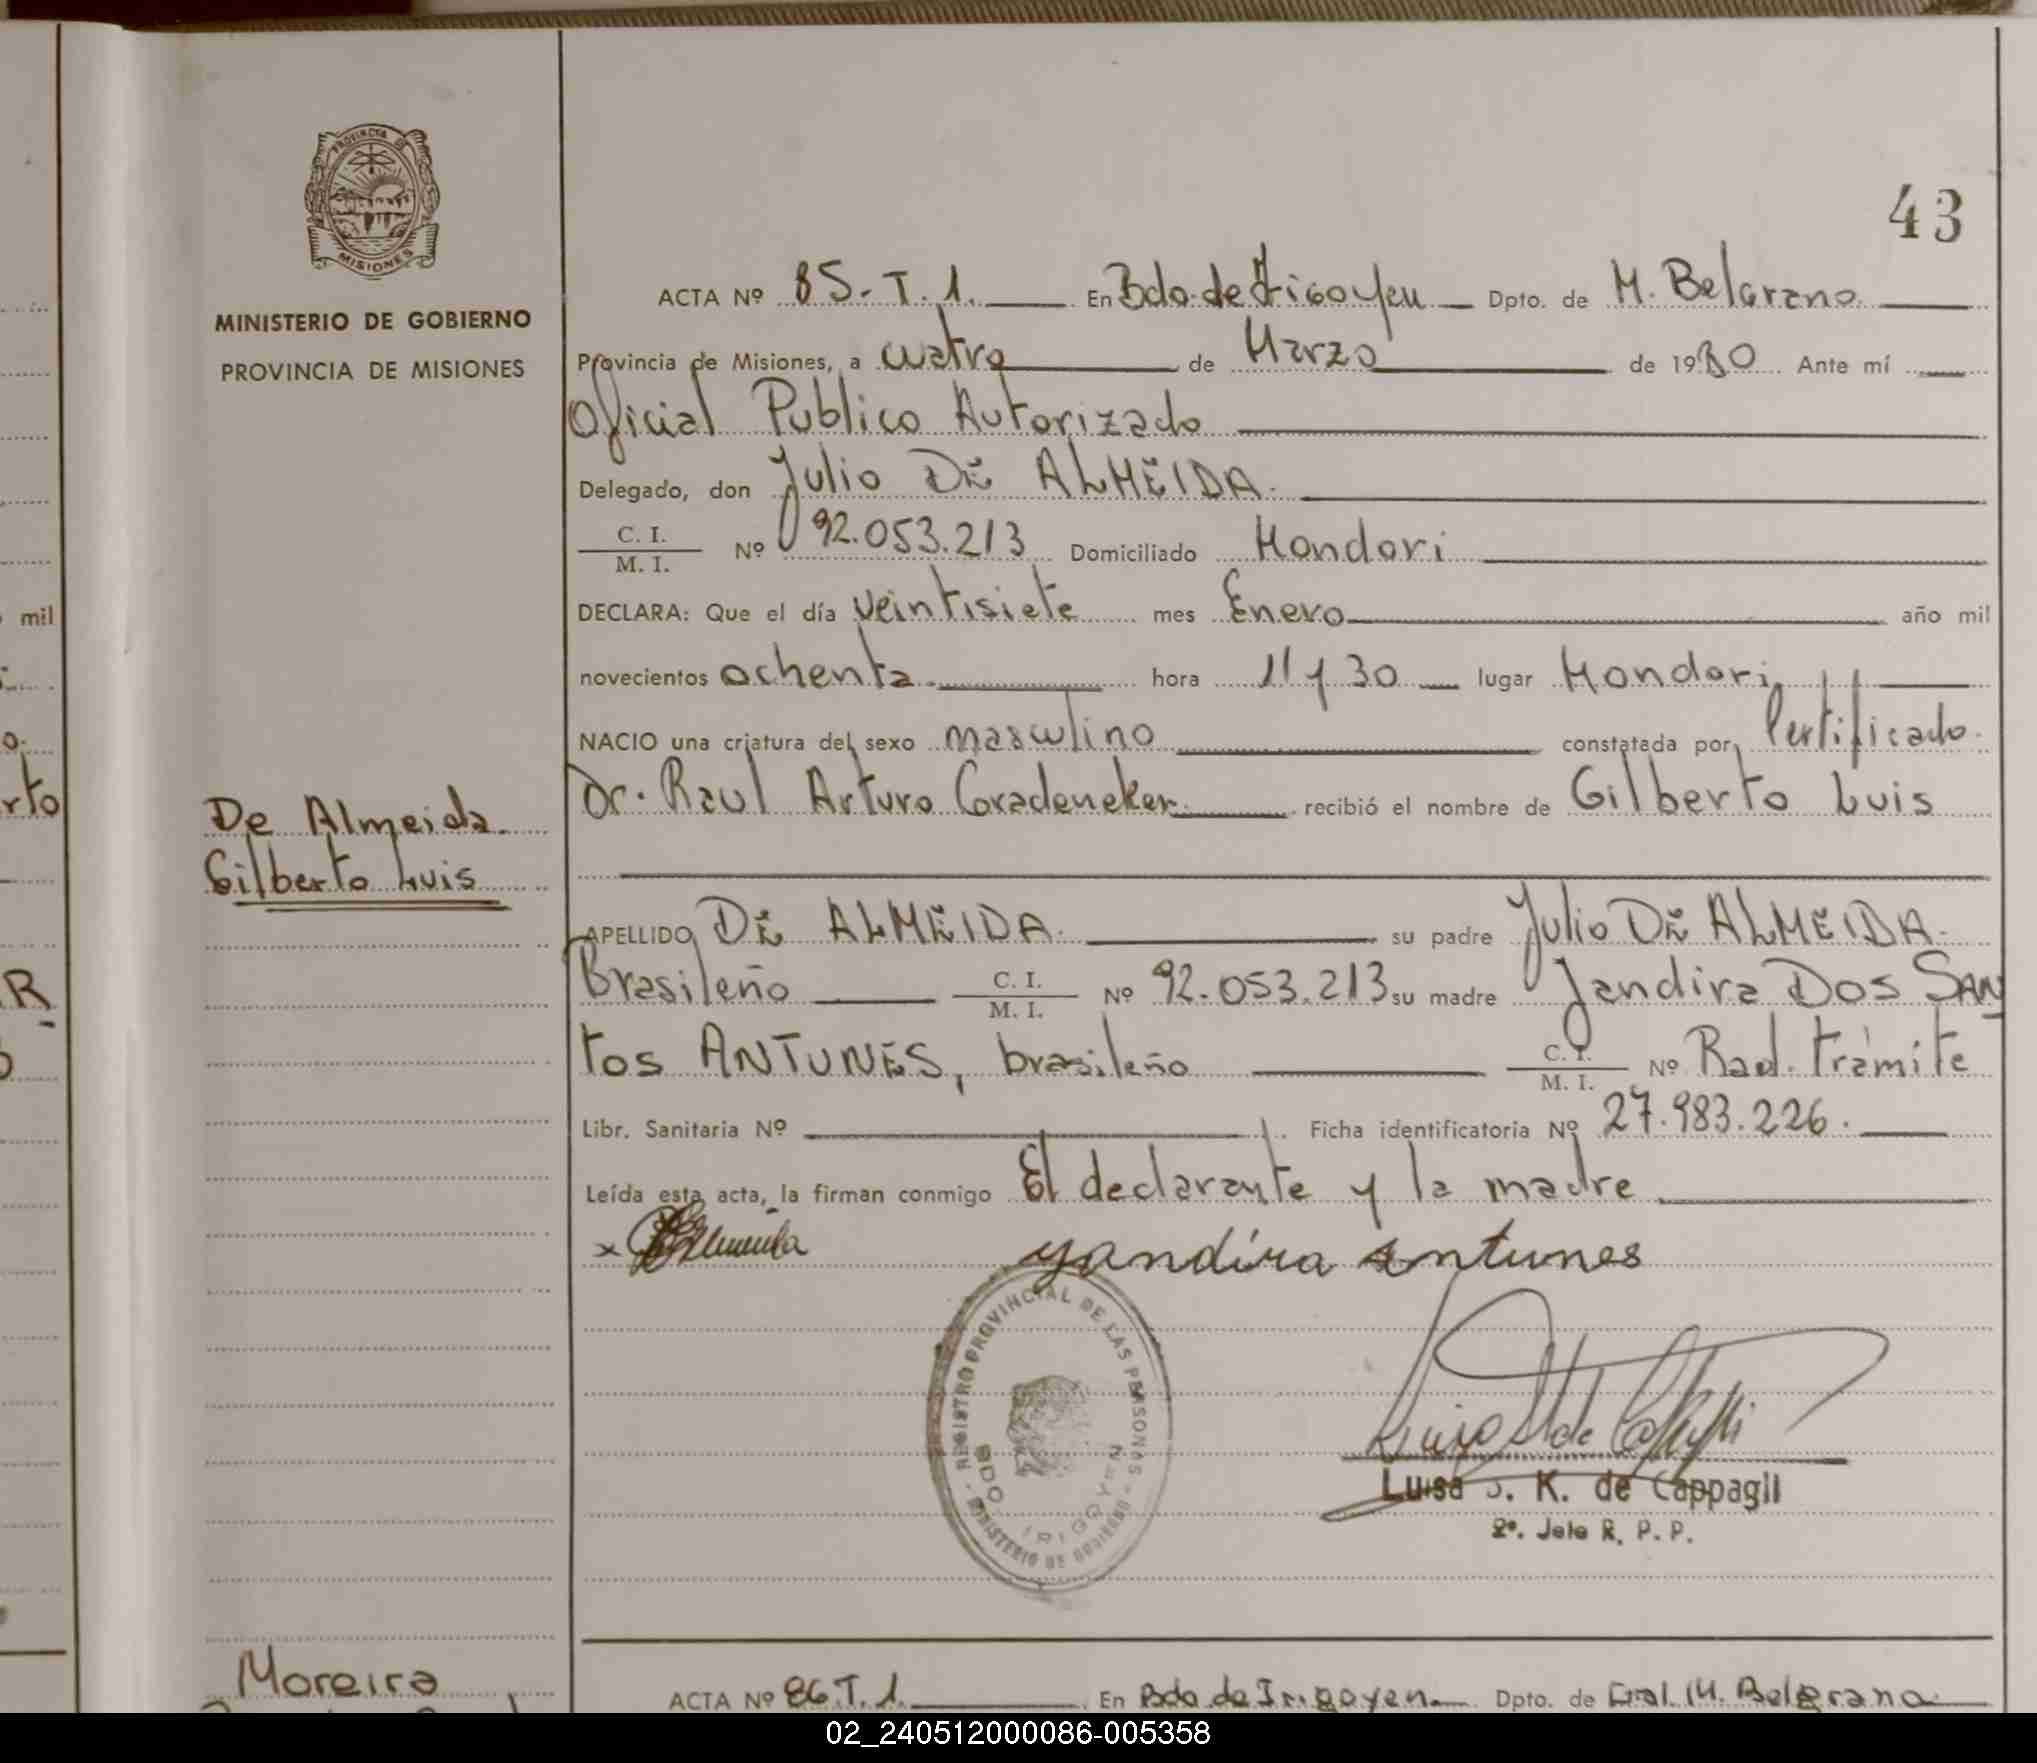 PROVINCIA DE
MISIONES
MINISTERIO DE GOBIERNO
PROVINCIA DE MISIONES
43
ACTA Nº 85-T.1. En Bdo. de Irigoyen Dpto. de M. Belgrano
Provincia de Misiones, a cuatro de Marzo de 1980 Ante mí
Oficial Publico Autorizado
Delegado, don Julio DE ALMEIDA.
C. I.
M. I. Nº 92.053.213 Domiciliado Mondori
DECLARA: Que el día veintisiete mes Enero año mil
novecientos ochenta. hora 11 y 30 lugar Mondori
NACIO una criatura del sexo masculino constatada por Certificado.
Dr. Raul Arturo Coradeneker. recibió el nombre de Gilberto Luis
De Almeida.
Gilberto Luis
APELLIDO DE ALMEIDA. su padre Julio DE ALMEIDA.
Brasileño C. I.
M. I. Nº 92.053.213 su madre Jandira DOS SAN
TOS ANTUNES, brasileño C. I.
M. I. Nº Rad. trámite
Libr. Sanitaria Nº Ficha identificatoria Nº 27.983.226.
Leída esta acta, la firman conmigo El declarante y la madre
x yandira antunes
REGISTRO PROVINCIAL DE LAS PERSONAS - MINISTERIO DE GOBIERNO -
BDO IRIGOYEN
Luisa J. K. de Cappagli
2º. Jefe R. P. P.
Moreira
ACTA Nº 86.T.1. En Bdo de Irigoyen Dpto. de Gral. M. Belgrano
mil
o.
rto
R
02_240512000086-005358